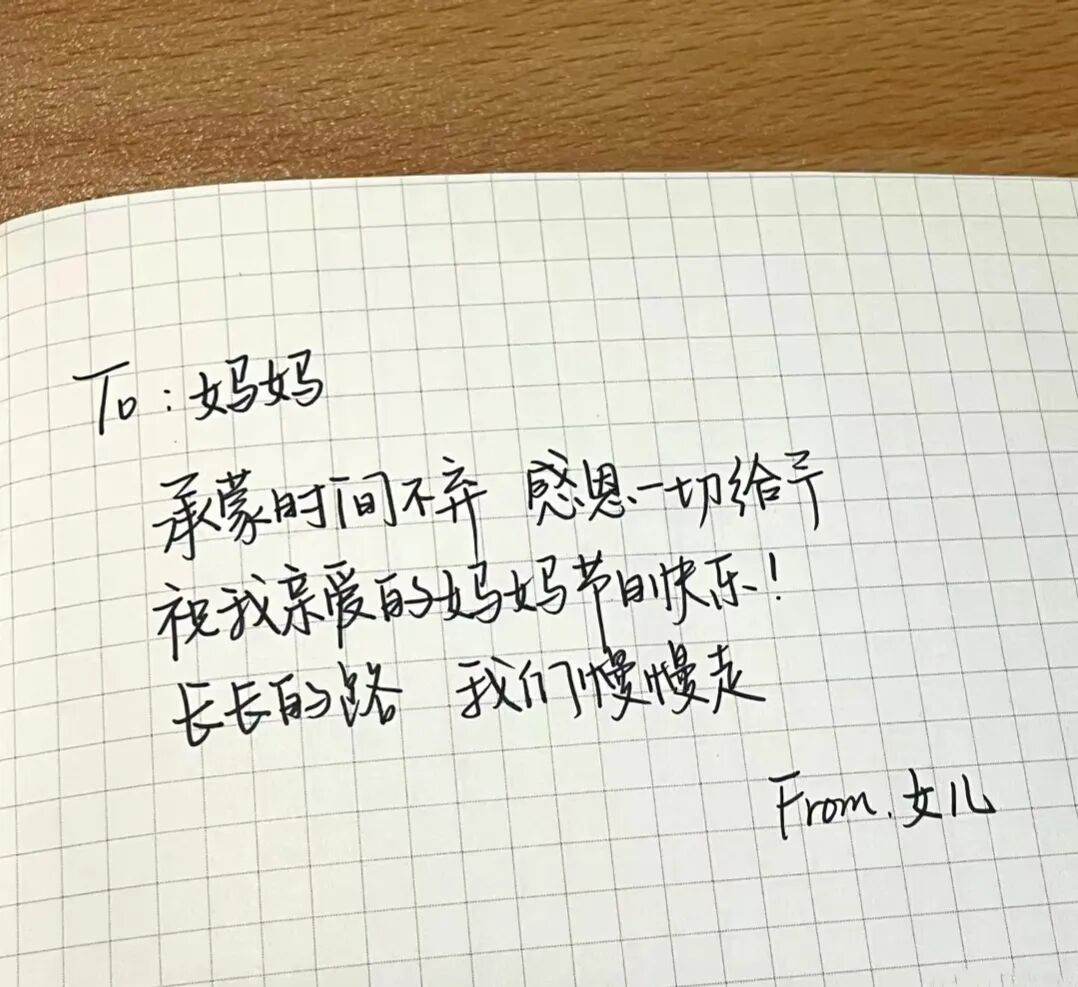 To:妈妈
承蒙时间不弃 感恩一切给予
祝我亲爱的妈妈节日快乐!
长长的路 我们慢慢走
From.女儿